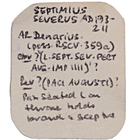 SEPTIMIUS
SEVERUS AD 193-
211
AR Denarius.
(poss. RSCV. 359a)
OBV? (L.SEPT.SEV.PERT
AUG.IMP IIII)?
REV? (PACI AUGUSTI)?
Pax seated L on
throne holds
branch & sceptre